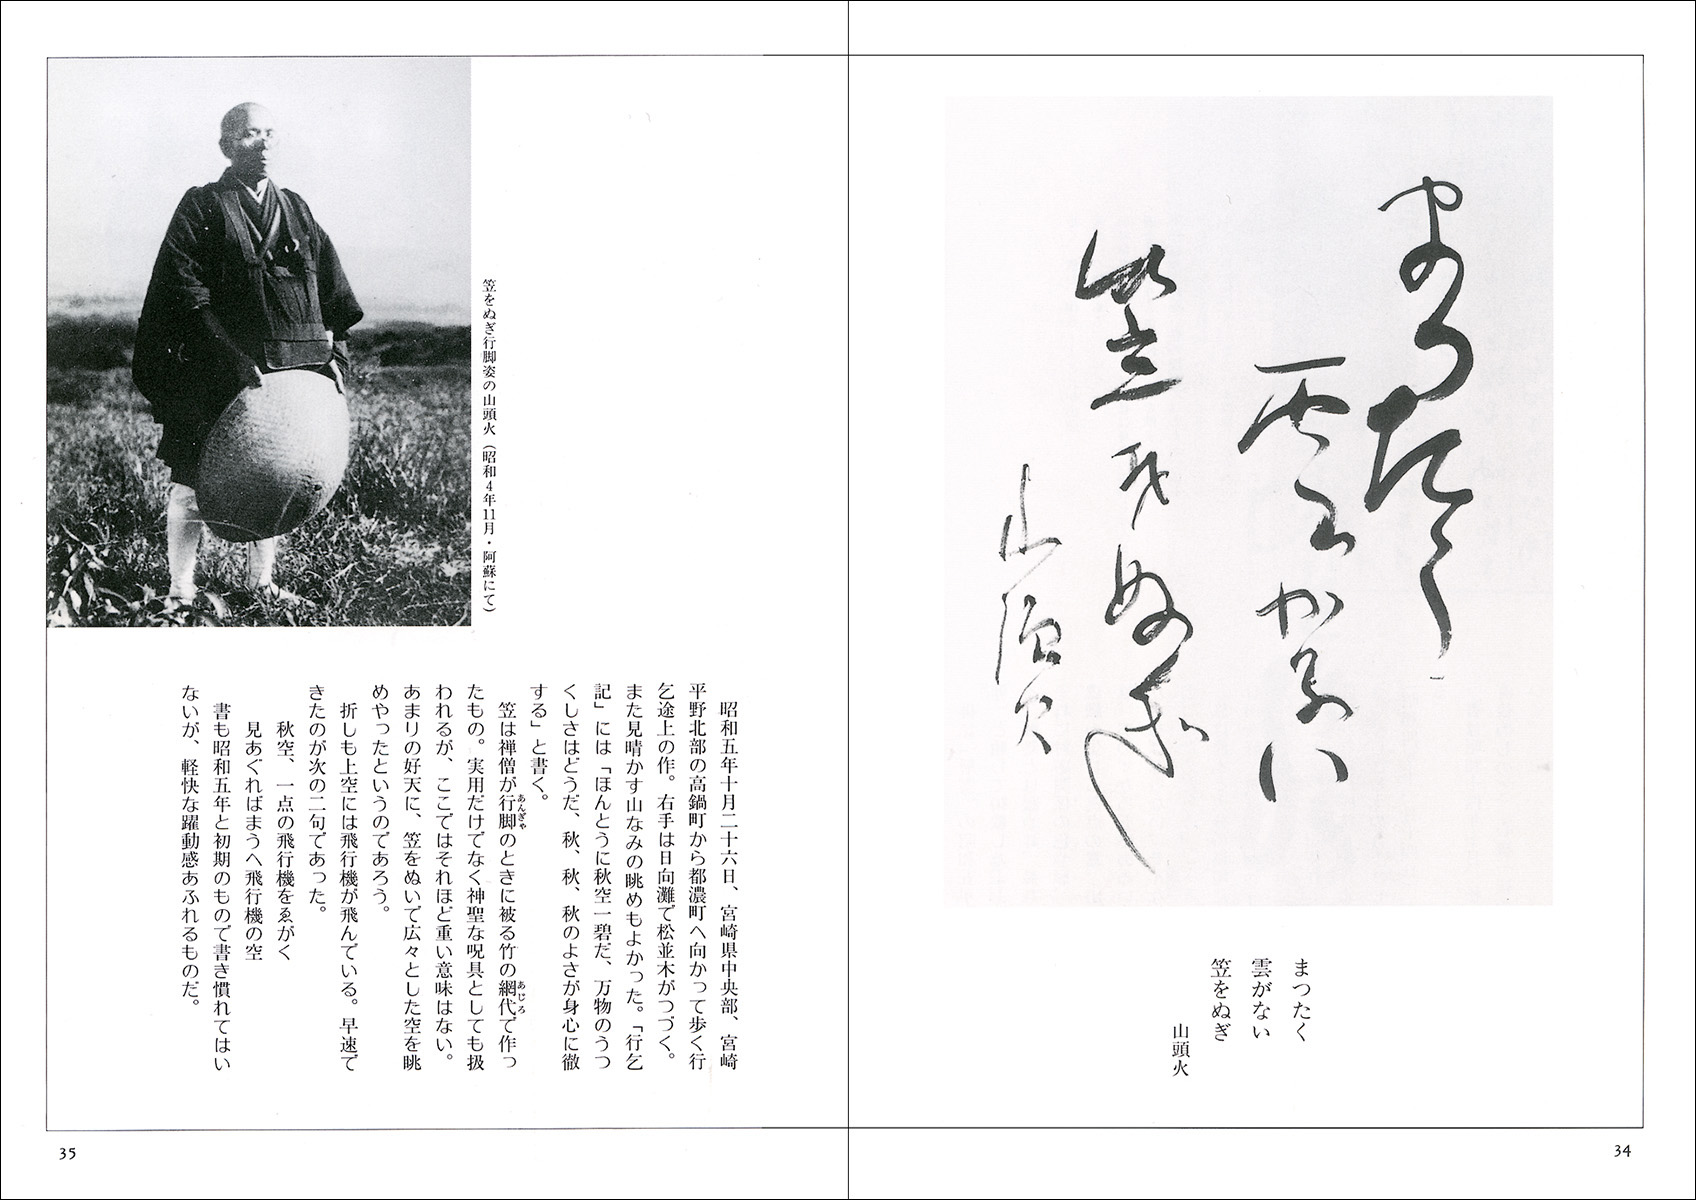 まつたく
雲がない
笠をぬぎ
山頭火
まつたく
雲がない
笠をぬぎ
山頭火
34
笠をぬぎ行脚姿の山頭火（昭和4年11月・阿蘇にて）
昭和五年十月二十六日、宮崎県中央部、宮崎
平野北部の高鍋町から都濃町へ向かって歩く行
乞途上の作。右手は日向灘で松並木がつづく。
また見晴かす山なみの眺めもよかった。「行乞
記」には「ほんとうに秋空一碧だ、万物のうつ
くしさはどうだ、秋、秋、秋のよさが身心に徹
する」と書く。
笠は禅僧が行脚のときに被る竹の網代で作っ
あんぎゃ
あじろ
たもの。実用だけでなく神聖な呪具としても扱
われるが、ここではそれほど重い意味はない。
あまりの好天に、笠をぬいで広々とした空を眺
めやったというのであろう。
折しも上空には飛行機が飛んでいる。早速で
きたのが次の二句であった。
秋空、一点の飛行機をゑがく
見あぐればまうへ飛行機の空
書も昭和五年と初期のもので書き慣れてはい
ないが、軽快な躍動感あふれるものだ。
35